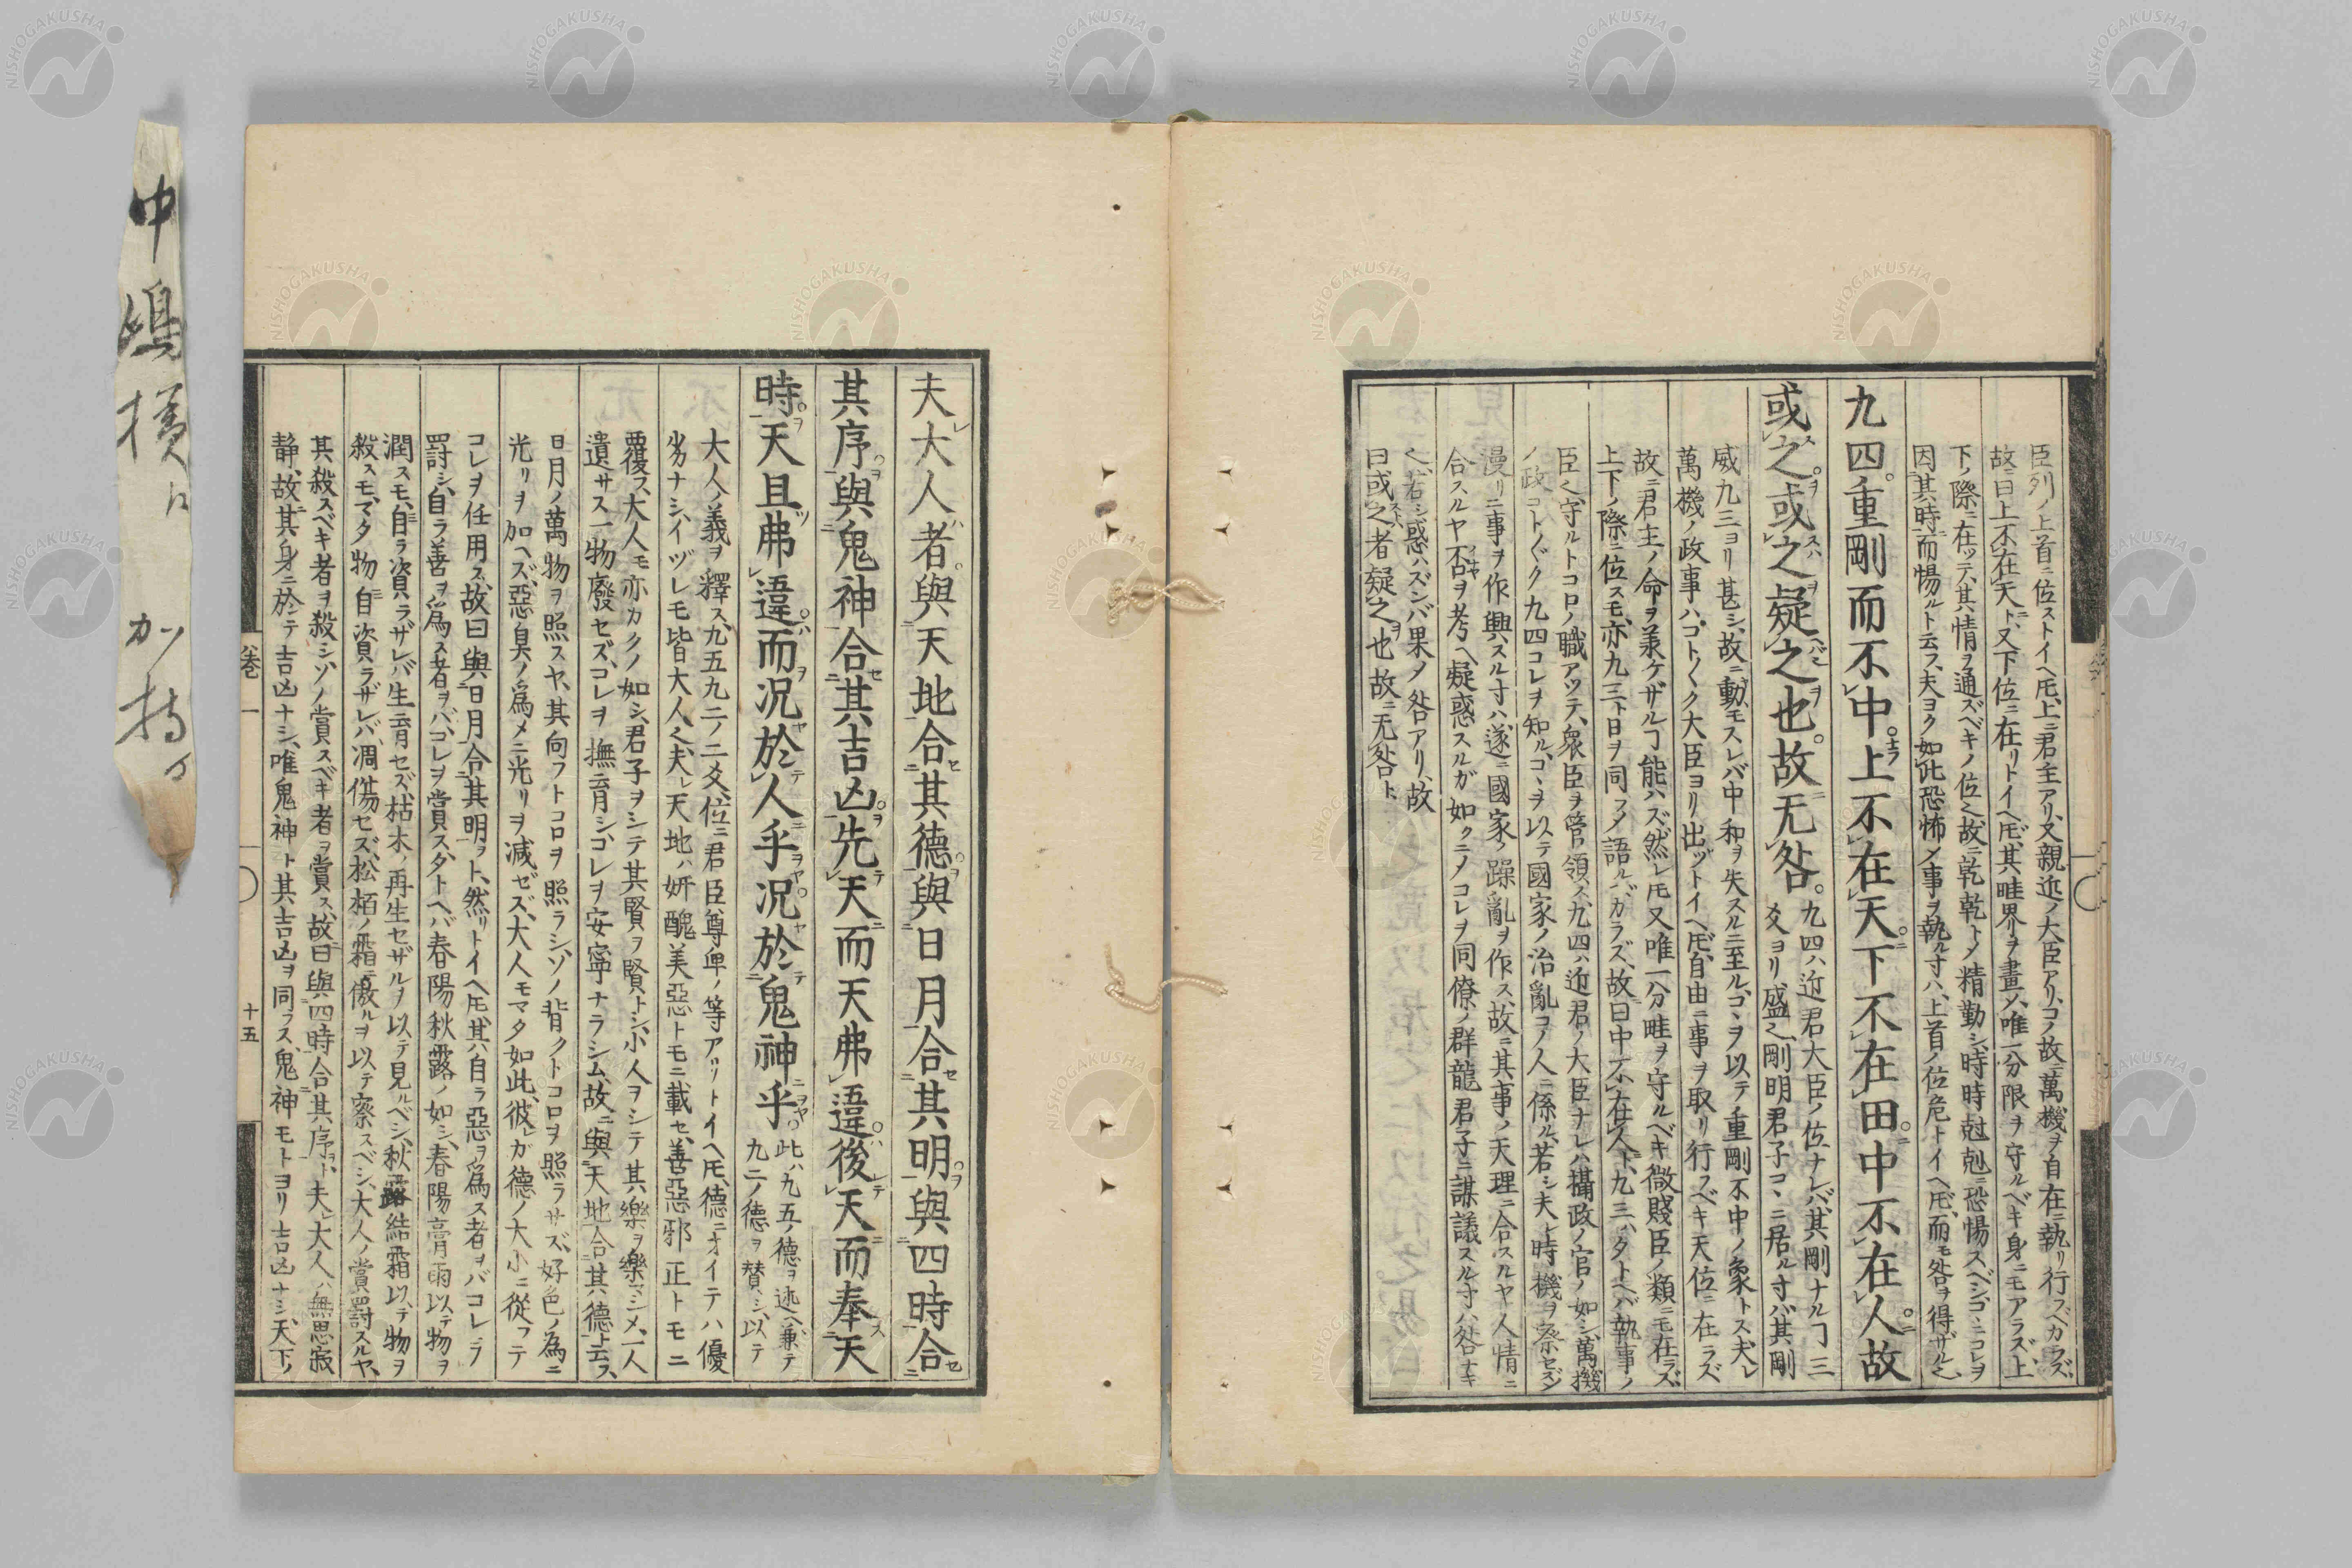 臣列ノ上首ニ位ストイヘ𪜈、上ニ君主アリ、又親近ノ大臣アリ、コノ故ニ萬機ヲ自在ニ執リ行フベカラズ、
故ニ曰上不在天ト、又下位ニ在リトイヘ𪜈、其畦界ヲ畫シ、唯一分限ヲ守ルベキ身ニモアラズ、上
下ノ際ニ在ッテ、其情ヲ通ズベキノ位也、故ニ乾乾トノ精勤シ、時時尅尅ニ恐惕スベシ、コヽニコレヲ
因其時而惕ルト云フ、夫ヨク如此恐怖ノ事ヲ執ル寸ハ、上首ノ位危トイヘ𪜈、而モ咎ヲ得ザル也、
九四重剛而不中上不在天下不在田中不在人故
或之或之疑之也故无咎
九四ハ近君大臣ノ位ナレバ其剛ナルヿ三
爻ヨリ盛也、剛明君子コヽニ居ル寸バ其剛
威九三ヨリ甚シ、故ニ動モスレバ中和ヲ失スルニ至ル、コヽヲ以テ重剛不中ノ象トス、夫レ
萬機ノ政事ハ、コトノ〱ク大臣ヨリ出ヅトイヘ𪜈、自由ニ事ヲ取リ行フベキ天位ニ在ラズ、
故ニ君主ノ命ヲ兼ケザルヿ能ハズ、然レ𪜈又唯一分畦ヲ守ルベキ微賤臣ノ類ニモ在ラズ、
上下ノ際ニ位スモ、亦九三ト日ヲ同フノ語ルベガラズ、故曰中不在人ト、九三ハタトヘバ執事ノ
臣也、守ルトコロノ職アッテ、衆臣ヲ管領ス、九四ハ近君ノ大臣ナレハ攝政ノ官ノ如シ、萬機
ノ政コト〲ク九四コレヲ知ル、コヽヲ以テ國家ノ治亂コノ人ニ係ル、若シ夫レ時機ヲ察セズシ
漫リニ事ヲ作興スル寸ハ、遂ニ國家ノ躁亂ヲ作ス、故ニ其事ノ天理ニ合スルヤ人情ニ
合スルヤ否ヲ考ヘ疑惑スルガ如クニノコレヲ同僚ノ群龍君子ニ謀議スル寸ハ咎ナキ
也、若シ惑ハズンバ果ノ咎アリ、故
曰或之者疑之也故ニ无咎ト
夫大人者與天地合其德與日月合其明與四時合
其序與鬼神合其吉凶先天而天弗違後天而奉天
時天且弗違而况於人乎况於鬼神乎
此ハ九五ノ德ヲ述ヘ兼テ
九二ノ德ヲ賛シ、以テ
大人ノ義ヲ釋ス、九五九二ノ二爻、位ニ君臣尊卑ノ等アットイヘ𪜈、德ニオイテハ優
劣ナシ、イヅレモ皆大人也、夫レ天地ハ妍醜美惡トモニ載セ、善惡邪正トモニ
覆フ、大人モ亦カクノ如シ、君子ヲシテ其賢ヲ賢トシ、小人ヲシテ其樂ヲ樂シメ、一人
遺サス一物廢セズ、コレヲ撫育シコレヲ安寧ナラシム、故ニ與天地合其德ト云フ、
日月ノ萬物ヲ照スヤ、其向フトコロヲ照ラシ、ソノ背クトコロヲ照ラサズ、好色ノ為ニ
光リヲ加ヘズ、惡臭ノ為メニ光リヲ减ゼズ、大人モマタ如此、彼レガ德ノ大小ニ從フテ
コレヲ任用ス、故曰與日月合其明ヲト、然リトイヘ𪜈、其自ラ惡ヲ為ス者ヲバコレヲ
罸シ、自ラ善ヲ為ス者ヲバ、コレヲ賞ス、タトヘバ春陽秋露ノ如シ、春陽膏雨以テ物ヲ
潤スモ、自ラ資ラザレバ生育セズ、枯木ノ再生セザルヲ以テ見ルベシ、秋露結霜以テ物ヲ
殺スモ、マタ物自資ラザレバ、凋傷セズ、松栢ノ霜ニ傲ルヲ以テ察スベシ、大人ノ賞罸スルヤ、
其殺スベキ者ヲ殺シ、ソノ賞スベキ者ヲ賞ス、故曰與四時合其序ト、夫大人ハ無思寂
静、故其身ニ於テ吉凶ナシ、唯鬼神ト其吉凶ヲ同フス、鬼神モトヨリ吉凶ナシ、天下ノ
卷一
十五
中嶋